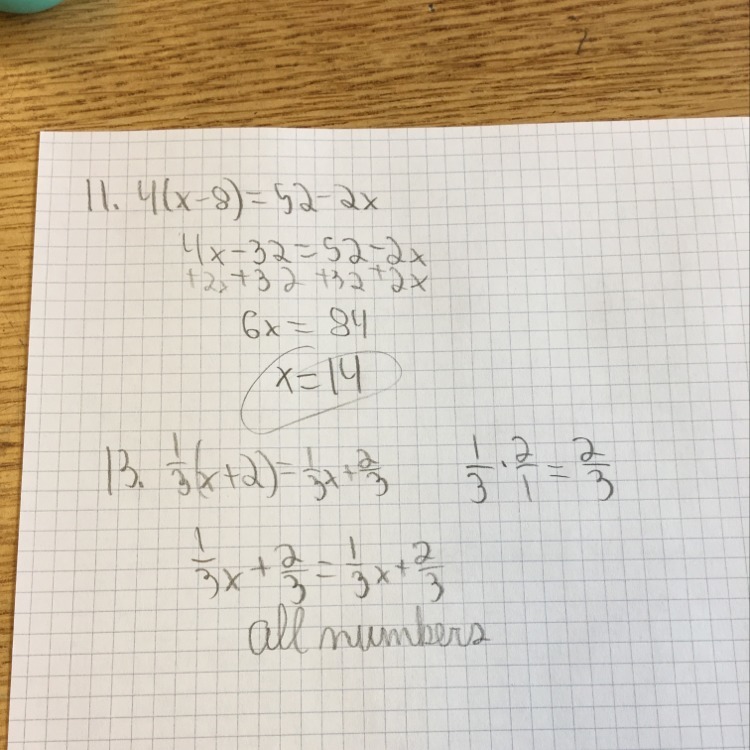 11. 4(x-8)=52-2x
4x-32=52-2x
+2x+32 +32+2x
6x=84
x=14
13. 1/3(x+2)=1/3x+2/3
1/3·2/1=2/3
1/3x+2/3=1/3x+2/3
all numbers